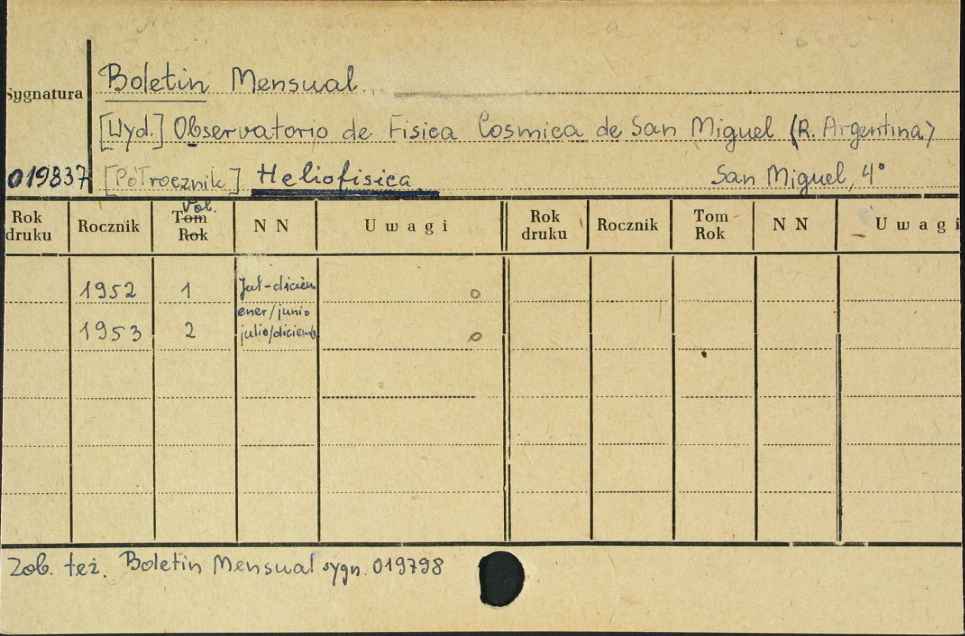 Boletin Mensual.
Sygnatura
[Wyd.] Observatorio de Fisica Cosmica de San Miguel (R. Argentina)
019837 [Półrocznik] Heliofisica San Miguel, 4°
Vol.
Rok druku Rocznik Tom Rok NN Uwagi Rok druku Rocznik Tom Rok NN Uwagi
1952 1 Jul-diciem
ener/junio
1953 2 julio/diciemb
Zob. też. Boletin Mensual sygn. 019798